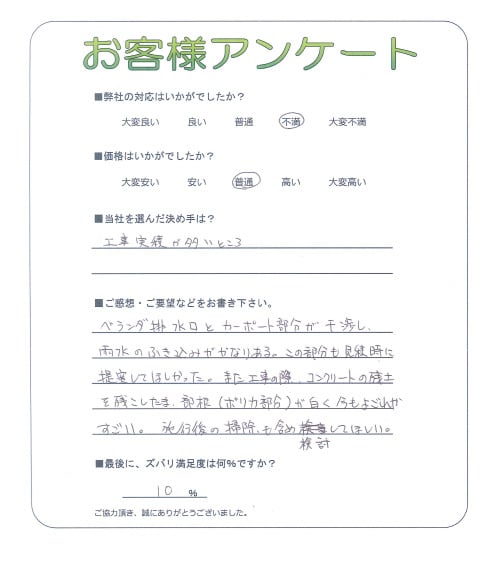 お客様アンケート
■弊社の対応はいかがでしたか？
大変良い 良い 普通 不満 大変不満
■価格はいかがでしたか？
大変安い 安い 普通 高い 大変高い
■当社を選んだ決め手は？
工事実績が多いところ
■ご感想・ご要望などをお書き下さい。
ベランダ排水口とカーポート部分が干渉し、
雨水のふき込みがかなりある。この部分も見積時に
提案してほしかった。また工事の際、コンクリートの残土
を残こしたま、部根（ポリカ部分）が白く今もよごれが
すごい。施行後の掃除も含め してほしい。
検討
■最後に、ズバリ満足度は何％ですか？
10 %
ご協力頂き、誠にありがとうございました。